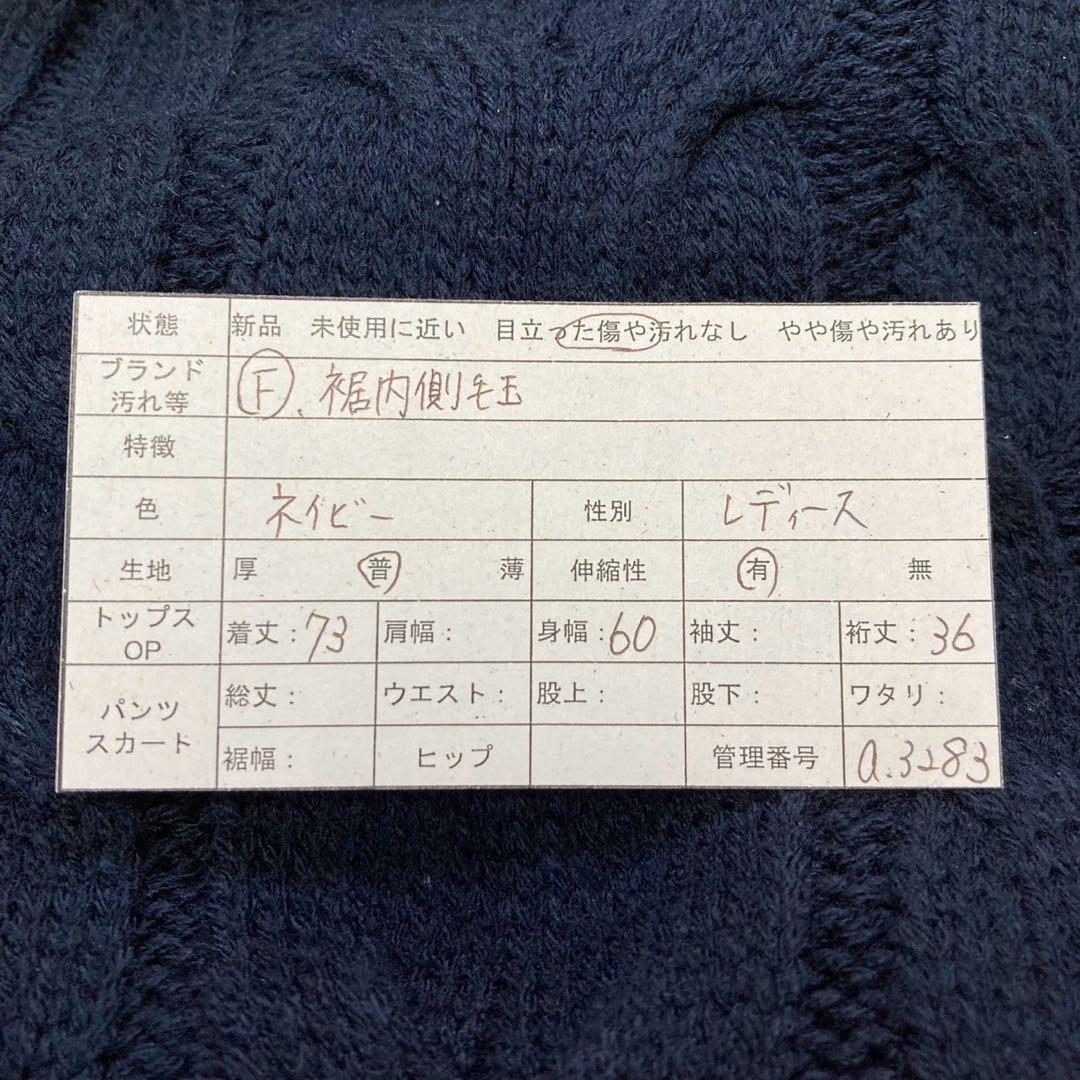 状態 新品 未使用に近い 目立った傷や汚れなし やや傷や汚れあり
ブランド
汚れ等 F、裾内側毛玉
特徴
色 ネイビー 性別 レディース
生地 厚 普 薄 伸縮性 有 無
トップス
OP 着丈:73 肩幅: 身幅:60 袖丈: 裄丈:36
パンツ
スカート
総丈: ウエスト: 股上: 股下: ワタリ:
裾幅: ヒップ 管理番号 a.3283